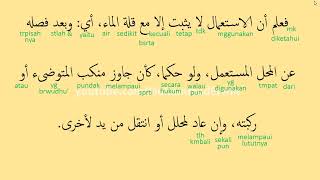 فعلم أن الاستعمال لا يثبت إلا مع قلة الماء، أي: وبعد فصله
trpisah nya stlah & yaitu air sedikit kecuali tetap tdk mggunakan mk diketahui
bsrta
عن المحل المستعمل، ولو حكما، كأن جاوز منكب المتوضىء أو
atau yg brwudhu' pundak melampaui sprti secara hukum walau pun yg digunakan tmpat dari
ركبته، وإن عاد لمحلل أو انتقل من يد لأخرى.
tlh kmbali sekali pun melampaui /lututnya